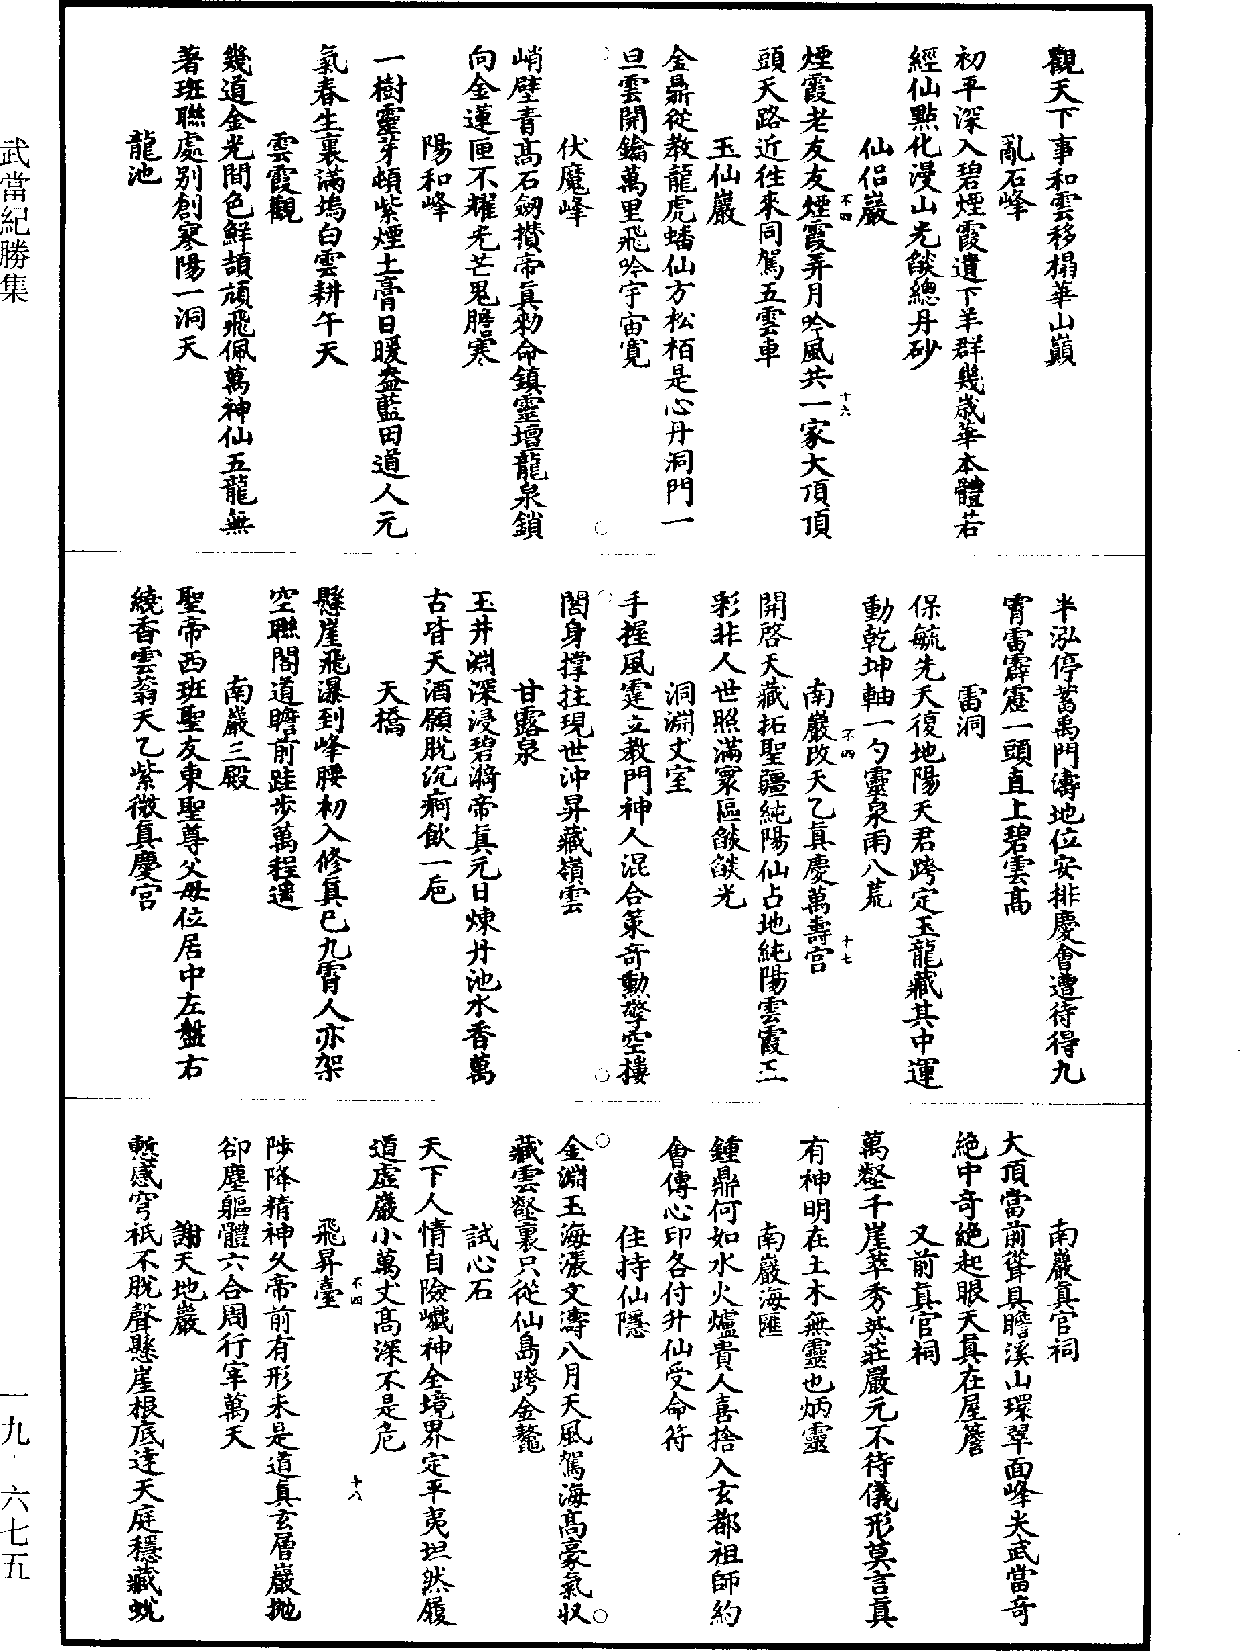 觀天下事和雲移榻華山巔
亂石峰
初平深入碧煙霞遺下羊群幾歲華本體若
經仙點化漫山光燄總丹砂
仙侣巖
不四
十六
煙霞老友友煙霞弄月吟風共一家大頂頂
頭天路近徃來同駕五雲車
玉仙巖
金鼎從教龍虎蟠仙方松栢是心丹洞門一
旦雲開鑰萬里飛吟宇宙寬
伏魔峰
峭壁青高石劒攢帝真勑命鎮靈壇龍泉鎖
向金蓮匣不耀光芒鬼膽寒
陽和峰
一樹靈芽頓紫煙土膏日暖盎藍田道人元
氣春生裏滿塢白雲耕午天
雲霞觀
幾道金光間色鮮頡頏飛佩萬神仙五龍無
著班聯處别創寒陽一洞天
龍池
半泓停蓄禹門濤地位安排慶會遭待得九
霄雷霹靂一頭直上碧雲高
雷洞
保毓先天復地陽天君跨定玉龍藏其中運
動乾坤軸一勺靈泉雨八荒
不四
十七
南巖改天乙真慶萬壽宫
開啓天藏拓聖疆純陽仙占地純陽雲霞三
彩非人世照滿寰區燄燄光
洞淵丈室
手握風霆立教門神人混合策奇勳擎空摟
閣身撑拄現世沖昇藏嶺雲
甘露泉
玉井淵深浸碧漪帝真元日煉丹池水香萬
古皆天酒願脱沉痾飲一巵
天橋
懸崖飛瀑到峰腰初入修真已九霄人亦架
空聯閣道瞻前跬步萬程遥
南巖三殿
聖帝西班聖友東聖尊父母位居中左盤右
繞香雲蓊天乙紫微真慶宫
南巖真官祠
大頂當前聳具瞻溪山環翠面峰尖武當奇
絶中奇絶起眼天真在屋簷
又前真官祠
萬壑千崖萃秀英莊嚴元不待儀形莫言真
有神明在土木無靈也炳靈
南巖海匯
鍾鼎何如水火爐貴人喜捨入玄都祖師約
會傳心印各付升仙受命符
住持仙隱
金淵玉海漲文濤八月天風駕海高豪氣収
藏雲壑裏只從仙島跨金鼇
試心石
天下人情自險巇神全境界定平夷坦然履
道虚巖小萬丈高深不是危
不四
十八
飛昇臺
陟降精神久帝前有形未是道真玄層巖拋
卻塵軀體六合周行宰萬天
謝天地巖
慙感穹祇不脱聲懸崖根底達天庭穩藏蛻
武當紀勝集
一九·六七五